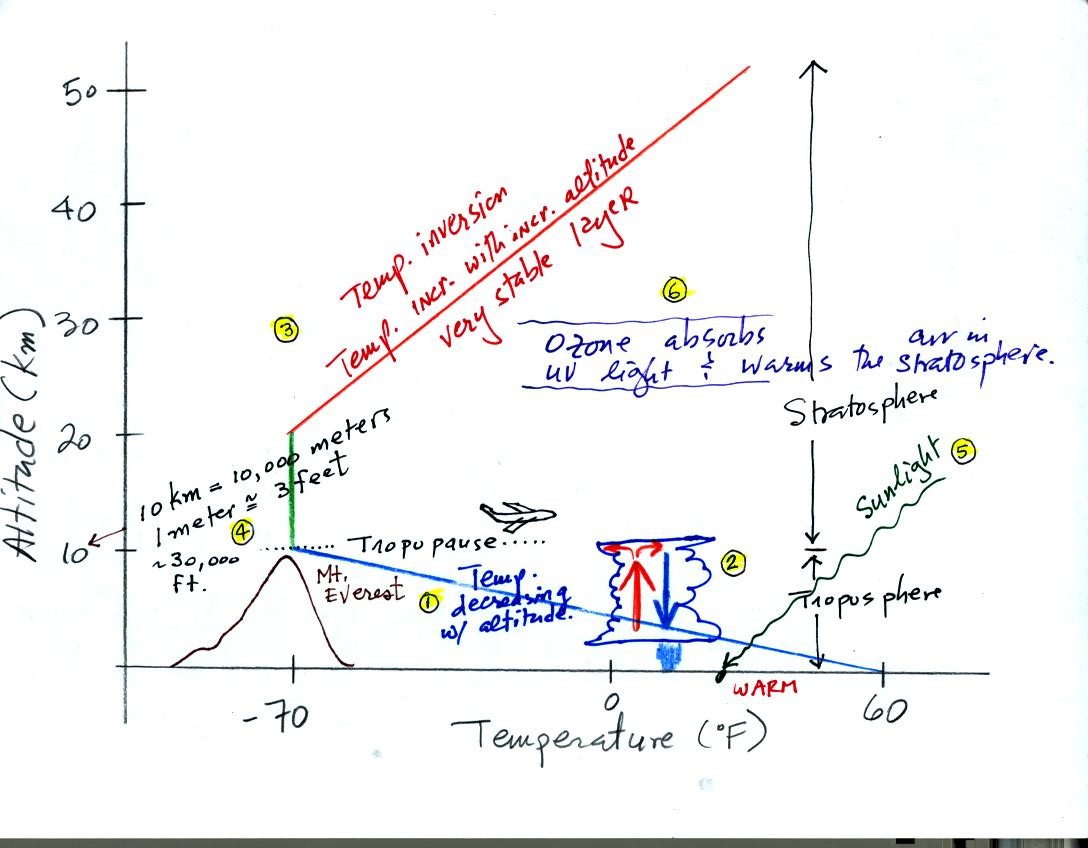 50
40
30
20
10
Altitude (km)
Temp. inversion
Temp. incr. with incr. altitude
very stable layer
3
6
Ozone absorbs
uv light & warms the air in stratosphere.
Stratosphere
10 km = 10,000 meters
1 meter ≅ 3 feet
4
~30,000
ft.
Sunlight
5
Tropopause
Mt.
Everest
1
Temp.
decreasing
w/ altitude.
2
Troposphere
WARM
-70
0
60
Temperature (°F)